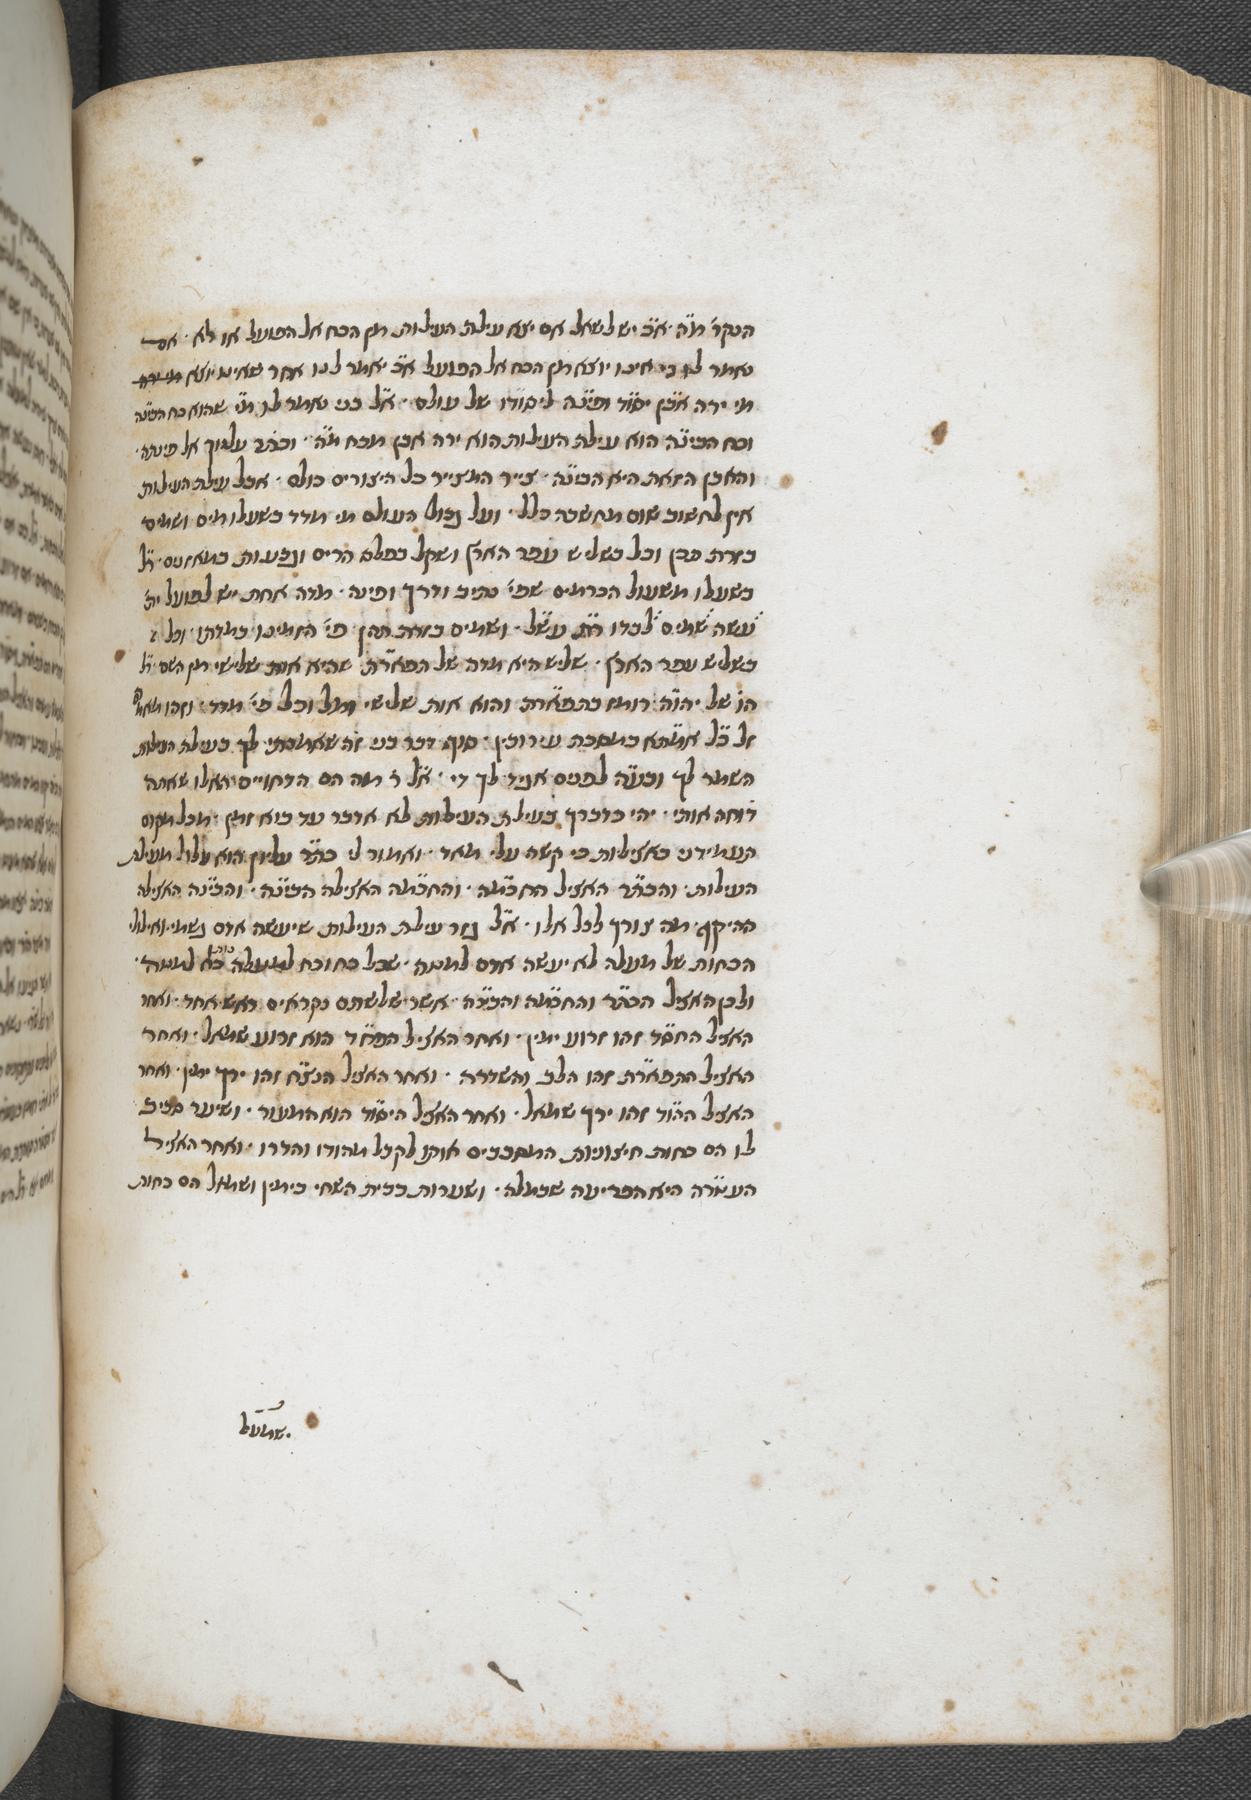 הנקר׳ מ״ה. א״כ יש לשאל אם יצא עילת העילות מן הכח אל הפועל או לא. אם
נאמר לו כי אינו יוצא מן הכח אל הפועל א״כ יאמר לנו אחר שאינו יוצא
מי ירה אבן יסוד ופינה ליסודו של עולם. א״ל בני נאמר לו מ״י שהוא כח הבינה
וכח הבינה הוא עילת העילות הוא ירה אבן מכח מ״ה. וכתב עלמך אל פינתה.
והאבן הזאת היא הבינה. צייר המצייר כל היצורים כולם. אבל עילת העילות
אין לחשוב שום מחשבה כלל. ועל גבול העולם מי מדד בשעלו מים ושמים
בזרת תכן וכל בשליש עפר הארץ ושקל בפלס הרים וגבעות במאזנים. ר״ל
בשעלו משעול הכרמים שפי׳ נתיב ודרך ופינה. מדה אחת יש לפועל ית׳
עשה שמים לבדו ר״ת עש״ל. ושמים בזרת תכן פי׳ הזמינו במדתו וכל
בשליש עפר הארץ. שליש היא מדה של התפארת שהיא אות שלישי מן השם ר״ל
הו׳ של יהו״ה רומז בתפארת והוא אות שלישי וכל פי׳ מדד. וזהו שאמ׳
זל כל אמתא במסכת עירובין. סוף דבר בני זה שאמרתי לך בעילת העילות
השמר לך ובע״ה לפנים אגיד לך די. א״ל ר׳ מה הם הדחויים האלו שאתה
דוחה אותי. יהי כדברך בעילת העילות לא אדבר עד בוא זמן. מכל מקום
העמידני באצילות כי קשה עלי מאד. ואמור לי כתר עליון הוא עלול מעילת
העילות. והכתר האציל החכמה. והחכמה האצילה הבינה. והבינה האצילה
ההיקף. מה צורך לכל אלו. א״ל גזר עילת העילות שיעשה אדם גשמי ואילולי
הכחות של מעלה לא יעשה אדם למטה. שכל כח וכח למעלה כח למטה.
ולכן האציל הכתר והחכמה והבינה. אשר שלשתם נקראים ראש אחד. ואחר
האציל החסד זהו זרוע ימין. ואחר האציל הפחד הוא זרוע שמאל. ואחר
האציל התפארת זהו הלב והשדרה. ואחר האציל הנצח זהו ירך ימין. ואחר
האציל ההוד זהו ירך שמאל. ואחר האציל היסוד הוא המעור. ושיער סביב
לו הם כחות חיצוניות המסבבים אותו לקבל מהודו והדרו. ואחר האציל
העטרה היא הפריעה שבמילה. ושערות בבית השחי בימין ושמאל הם כחות
שמעל